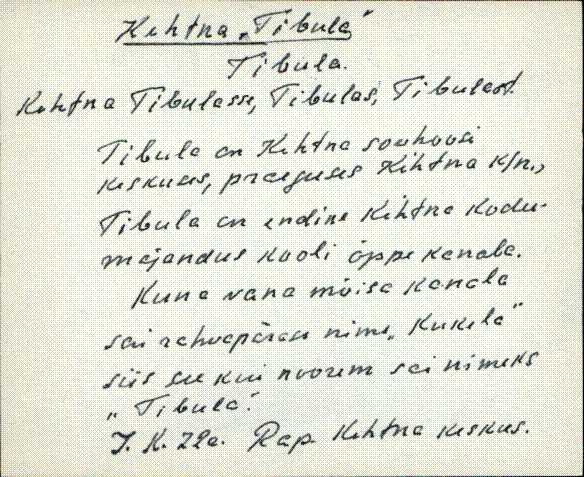 Kehtna „Tibula"
Tibula.
Kehtna Tibulasse, Tibulas, Tibulast.
Tibula on Kehtna sovhoosi
keskuses, praeguses Kehtna k/n.,
Tibula on endine Kehtna Kodu-
majandus kooli õppe kanala.
Kuna vana mõisa kanala
sai rahvapärase nime „Kukela"
siis see kui noorem sai nimeks
„Tibula".
J. K. 22a. Rap. Kehtna keskus.